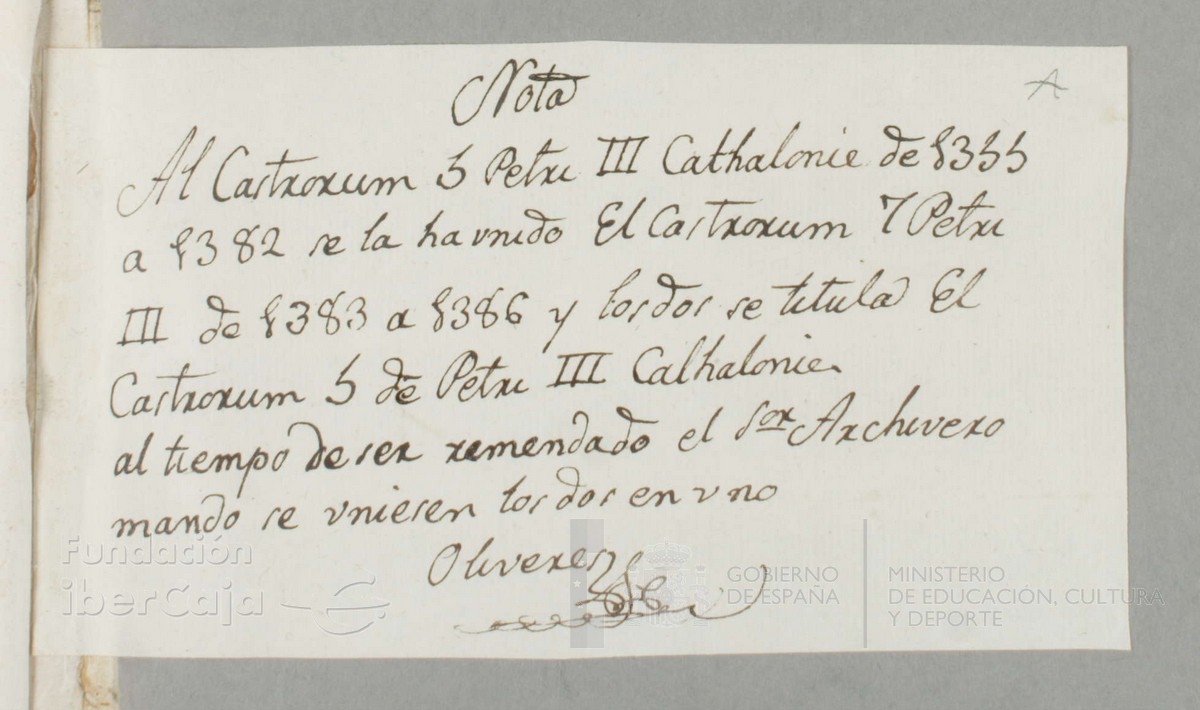 Nota
A
Al Castrorum 5 Petri III Cathalonie de 1355
a 1382 se la ha vnido El Castrorum 7 Petri
III de 1383 a 1386 y los dos se titula El
Castrorum 5 de Petri III Cathalonie.
al tiempo de ser remendado el Sor Archivero
mando se vniesen los dos en vno
Oliveres
Fundación
iberCaja
GOBIERNO
DE ESPAÑA
MINISTERIO
DE EDUCACIÓN, CULTURA
Y DEPORTE